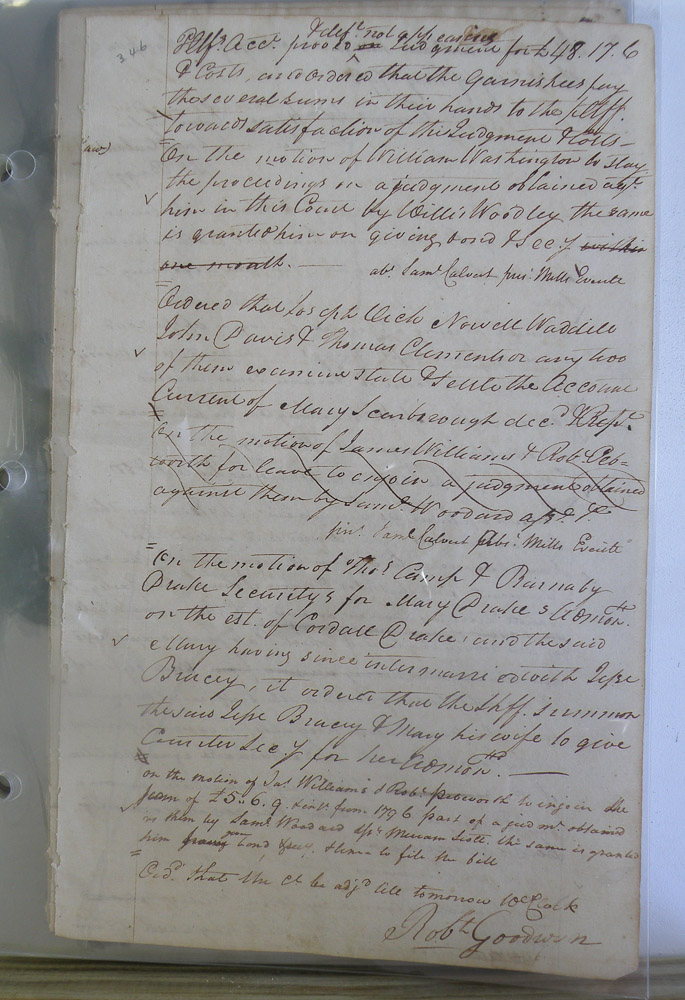 346
& deft. not appearing
Pltfs. Acct. proved Judgment for £48.17.6
& Costs, and ordered that the garnishees pay
the several sums in their hands to the pltff.
towards satisfaction of the Judgment & Costs—
On the motion of William Washington to stay
the proceedings on a judgment obtained agt.
him in this Court by Willis Woodley the same
is granted him on giving bond & Secy within
one month. — abt. Saml. Calvert prest. Mills Eveute
Ordered that Joseph Vick Nowell Waddill
John Davis & Thomas Clements or any two
of them examine state & settle the Account
Current of Mary Scarbrough decd. & Rept.
On the motion of James Williams & Robt. Peb=
worth for leave to enjoin a judgment obtained
against them by Saml. Woodard assd. &c.
prest. Saml. Calvert abst. Mills Eveute
On the motion of Thos. Camp & Barnaby
Drake Securitys for Mary Drake's Admon.
on the est. of Cordall Drake, and the said
Mary having since intermarried with Jesse
Bracey, it ordered that the Shff. summon
the said Jesse Bracey & Mary his wife to give
Counter Secy for her Admon. —
on the motion of Jas. Williams & Robt. Pebworth to injoin the
sum of £5.6.9 & int. from 1796 part of a judmt. obtained
vs them by Saml. Woodard assee. Meriam Scott. the same is granted
him bond & Secy. & time to file the bill
Ord. that the Ct. be adjd. till tomorrow 10 oClock
Robt. Goodwyn